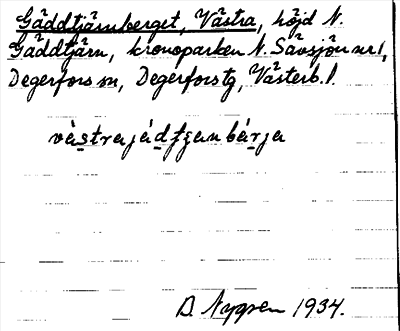 Gäddtjärnberget, Västra, höjd N.
Gäddtjärn, kronoparken N. Sävsjön nr 1,
Degerfors sn, Degerfors tg, Västerb. l.
D. Nygren 1934.